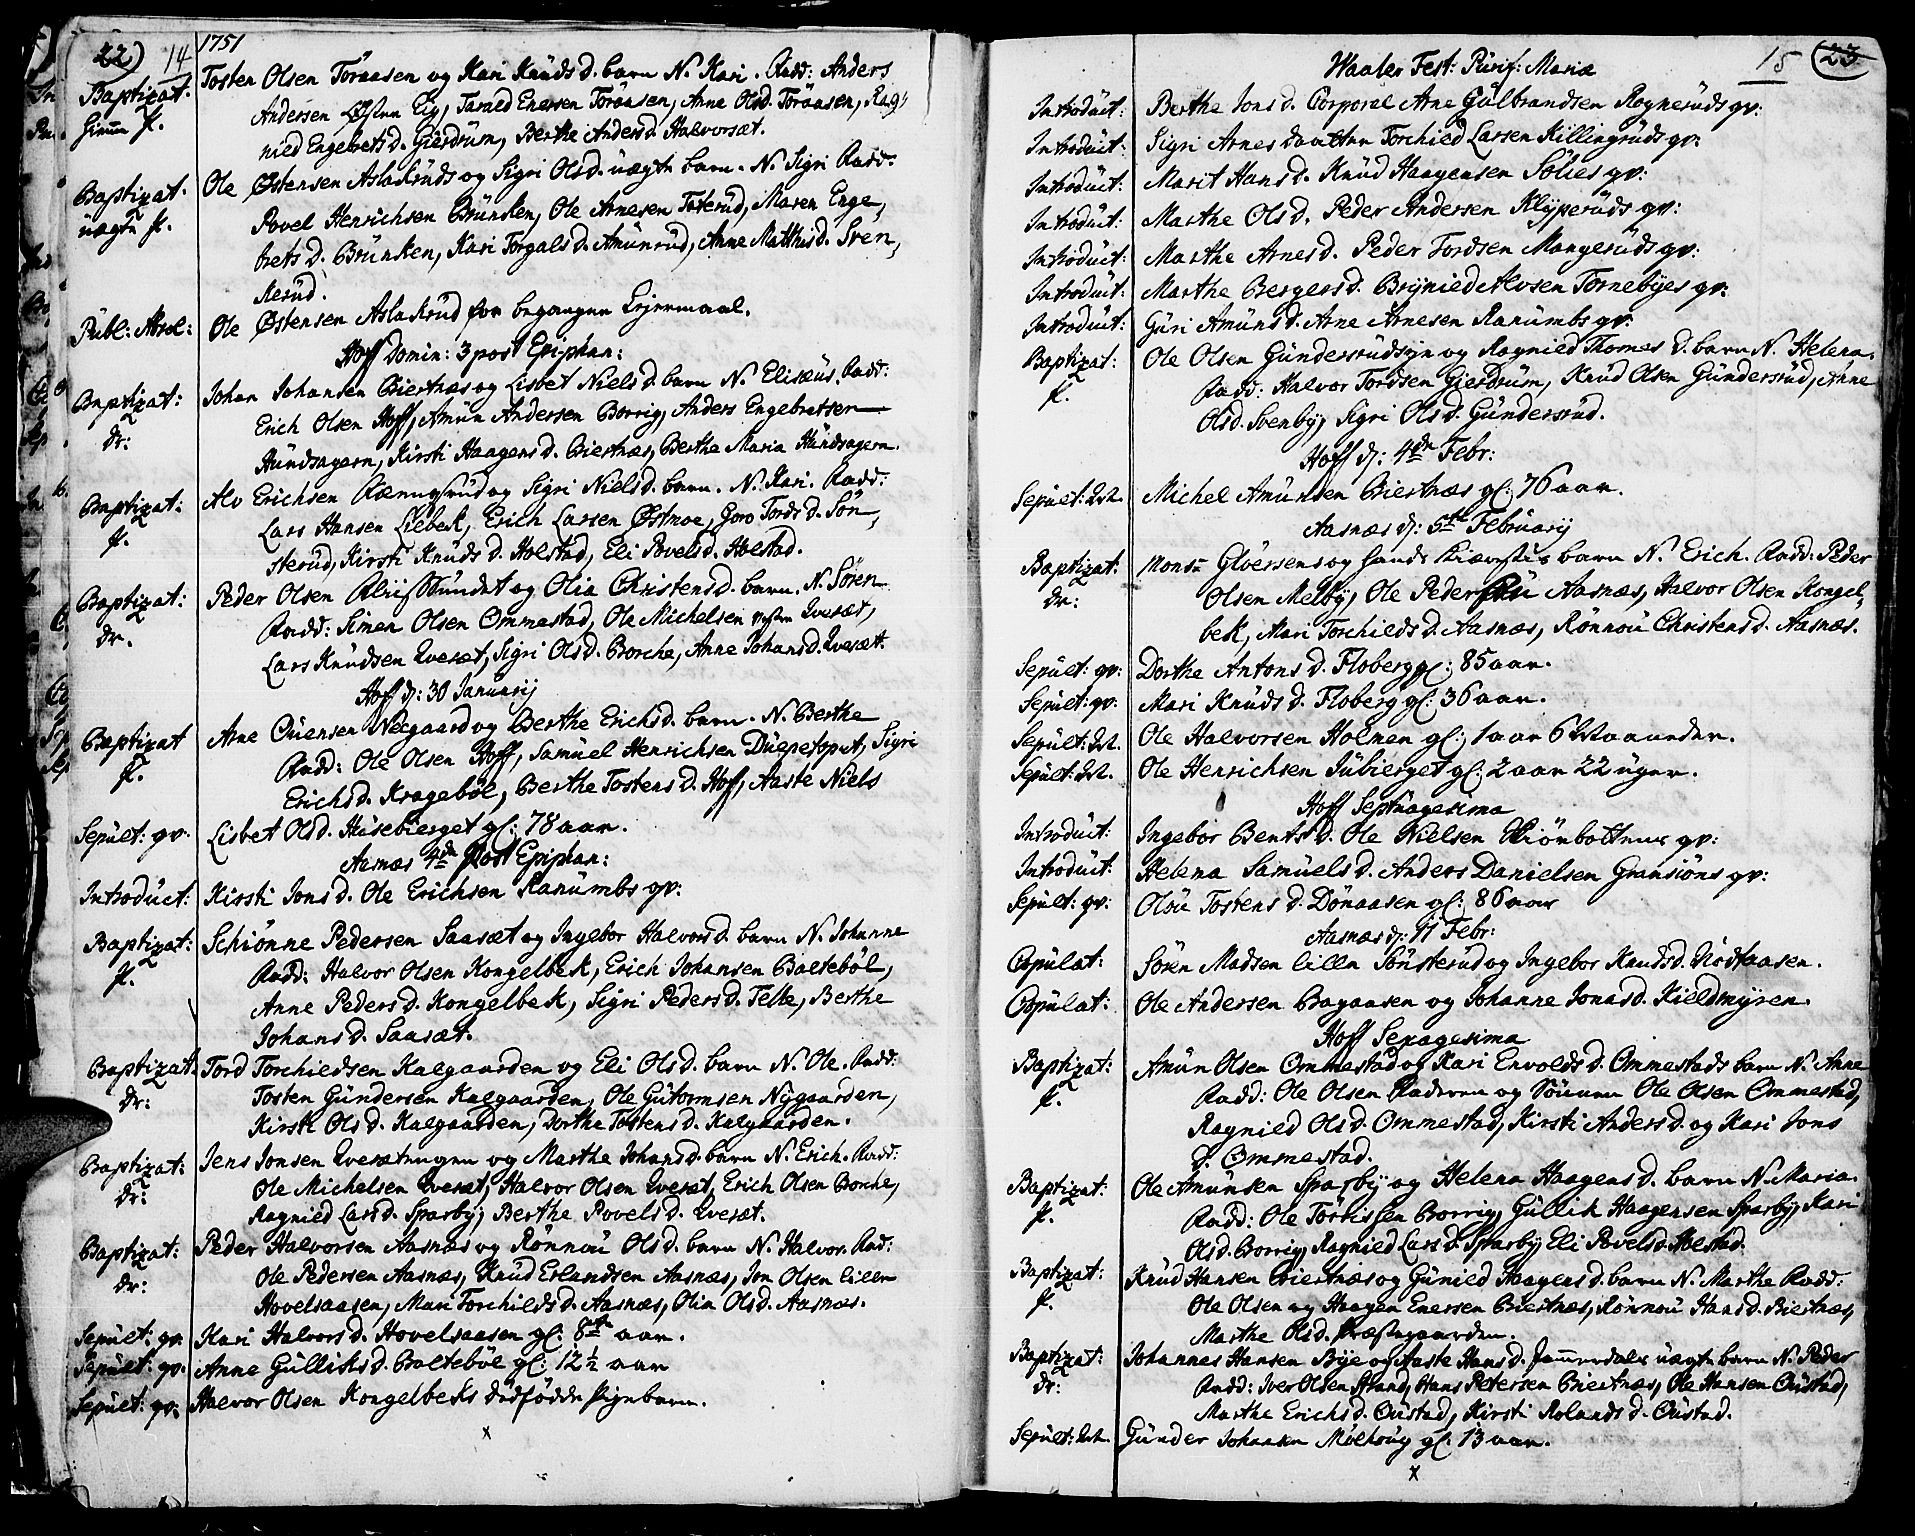 22) 14 1751
Baptizat. Tosten Olsen Töraasen og Kari Knudsd. barn N. Kari. Fadd: Anders
p. Andersen Østen Eig, Tarald Enersen Töraasen, Anne Olsd. Töraasen, Rag,
nied Engebretsd. Gierdrum, Berthe Andersd. Halvorsæt.
Baptizat. Ole Østensen Aslakrüds og Sigri Olsd. üægte barn. N. Sigri Fadd:
üægte p. Povel Henrichsen Brünken, Ole Arnesen Toterüd, Maren Enge,
brets d. Brünken, Kari Torgals d. Amünrüd, Anne Matthisd. Sven,
kerüd.
Püb: Absol: Ole Østensen Aslakrüd for begangen Leiermaal.
Hoff Domin: 3 post Epiphan:
Baptizat: Johan Johansen Biertnæs og Lisbet Niels d. barn N. Elisæus. Fadd:
dr: Erich Olsen Hoff, Amün Andersen Borrig, Anders Engebretsen
Hündsagern, Kirsti Haagens d. Biertnæs, Berthe Maria Hündsagern.
Baptizat: Alv Erichsen og Sigri Niels d. barn. N. Kari. Fadd:
p. Lars Hansen Liebek, Erich Larsen Østmoe, Goro Tords d. Sön,
sterüd, Kirsti Knüds d. Holstad, Eli Povels d. Holstad.
Baptizat: Peder Olsen og Olia Christens d. barn. N. Sören
dr. Fadd: Simen Olsen Ommestad, Ole Michelsen Qvesæt,
Lars Knüdsen Qvesæt, Sigri Ols d. Borche, Anne Johans d. Qvesæt.
Hoff d: 30 Januarij
Baptizat Arne Nügaard og Berthe Erichs d. barn. N. Berthe
p. Fadd: Ole Olsen Hoff, Samüel Henrichsen Düepetopet, Sigri
Erichs d. Kragebøl, Berthe Tostens d. Hoff, Aaste Niels
Sepült: gv. Lisbet Ols d. Hüsebierget gl: 78 aar.
Aasnæs 4de post Epiphan:
Introdüct: Kirsti Jons d. Ole Erichsen Ranümbs gv:
Baptizat: Schiönne Pedersen Saasæt og Ingebor Halvors d. barn N. Johanne
p. Fadd: Halvor Olsen Kongelbek, Erich Johansen Baltebøl,
Anne Peders d. Kongelbek, Sigri Peders d. Telle, Berthe
Johans d. Saasæt.
Baptizat: Tord Torchildsen Kalgaarden og Eli Ols d. barn N. Ole. Fadd:
dr: Tosten Gündersen Kalgaarden, Ole Gütormsen Nÿgaarden,
Kirsti Ols d. Kalgaarden, Dorthe Tostens d. Kalgaarden.
Baptizat: Jens Jonsen Qvesætengen og Marthe Johans d. barn N. Erich. Fadd:
dr: Ole Michelsen Qvesæt, Halvor Olsen Qvesæt, Erich Olsen Borche,
Ragnied Lars d. Sparby, Berthe Povels d. Qvesæt.
Baptizat: Peder Halvorsen Aasnæs og Rönnoü Ols d. barn N. Halvor. Fad:
dr: Ole Pedersen Aasnæs, Knüd Erlandsen Aasnæs, Jon Olsen lille
Hovelsaasen, Mari Torchilds d. Aasnæs, Olia Ols d. Aasnæs.
Sepült: gv. Kari Halvors d. Hovelsaasen gl: 8te aar.
Sepült: gv. Anne Gülliks d. Baltebøl gl: 12 ½ aar
Sepült: gv: Halvor Olsen Kongelbeks dödfödde Pigebarn.
x
15 (23
Waaler Fest: Pürif: Mariæ
Introdüct: Berthe Jons d. Corporal Arne Gülbrandsen Rognerüds gv:
Introdüct: Sigri Arnes daatter Torchied Larsen Killingrüds gv:
Introdüct: Marit Hans d. Knüd Haagensen Sölies gv:
Introdüct: Marthe Ols d. Peder Andersen Klÿperüds gv:
Introdüct: Marthe Arnes d. Peder Tordsen Mangerüds gv:
Introdüct: Marthe Bergers d. Brÿnied Alvsen Tornebÿes gv:
Introdüct: Güri Amüns d. Arne Arnesen Ranümbs gv:
Baptizat: Ole Olsen Günderrüdsyn og Ragnied Thomes d. barn N. Helena.
p. Fadd: Halvor Tordsen Gierdrüm, Knüd Olsen Gündersrüd, Anne
Olsd. Svenby, Sigri Ols d. Gündersrüd.
Hoff d: 4de Febr:
Sepült: Michel Amünsen Biertnæs gl: 76 aar.
Aasnæs d: 5te Februarij
Baptizat: Mons Glöersens og Hand barn N. Erich. Fadd: Peder
dr: Olsen Melbÿ, Ole Peder Aasnæs, Halvor Olsen Kongel,
bek, Mari Torchilds d. Aasnæs, Rönnoü Christens d. Aasnæs.
Sepült: gv: Dorthe Antons d. Floberg gl: 85 aar.
Sepült: gv: Mari Knüds d. Floberg gl: 36 aar.
Sepült: Ole Halvorsen Holmen gl: 1 aar 6 Maaneder.
Sepült: Ole Henrichsen Jübierget gl: 2 aar 22 üger.
Hoff Septüagesima
Introdüct: Ingebor Bents d. Ole Nielsen gv:
Introdüct: Helena Samüels d. Anders Danielsen Gransiöns gv:
Sepült: gv: Olaü Tostens d. Dönaasen gl: 86 aar
Aasnæs d: 11 Febr:
Copülat: Sören Madsen lille Sönsterüd og Ingebor Knüds d. Nordtaasen.
Copülat: Ole Andersen Bagaasen og Johanne Jonas d. Kieldmÿren.
Hoff Sexagesima
Baptizat: Amün Olsen Ommestad og Kari Envolds d. Ommestads barn N. Anne
p. Fadd: Ole Olsen Faderen og Sönnen Ole Olsen Ommestad,
Ragnied Ols d. Ommestad, Kirsti Anders d. og Kari Jons
d. Ommestad.
Baptizat: Ole Amünsen Sparbÿ og Helena Haagens d. barn N. Maria.
p. Fadd: Ole Törrissen Borrig, Güllik Haagensen Sparbÿ, Kari
Olsd. Borrig, Ragnied Lars d. Sparbÿ, Eli Povels d. Holstad.
Baptizat: Knüd Hansen Biertnæs og Günied Haagens d. barn N. Marthe Fadd:
p. Ole Olsen og Haagen Enersen Biertnæs, Rönnoü Hans d. Biertnæs,
Marthe Ols d. Præstegaarden.
Baptizat: Johannes Hansen Bÿe og Aaste Hans d. üægte barn N. Peder
dr: Fadd: Iver Olsen Strand, Hans Petersen Biertnæs, Ole Hansen Oüstad,
Marthe Erichs d. Oüstad, Kirsti Rolands d. Oüstad.
Sepült: Günder Johansen Mölhoüg gl: 13 aar.
x